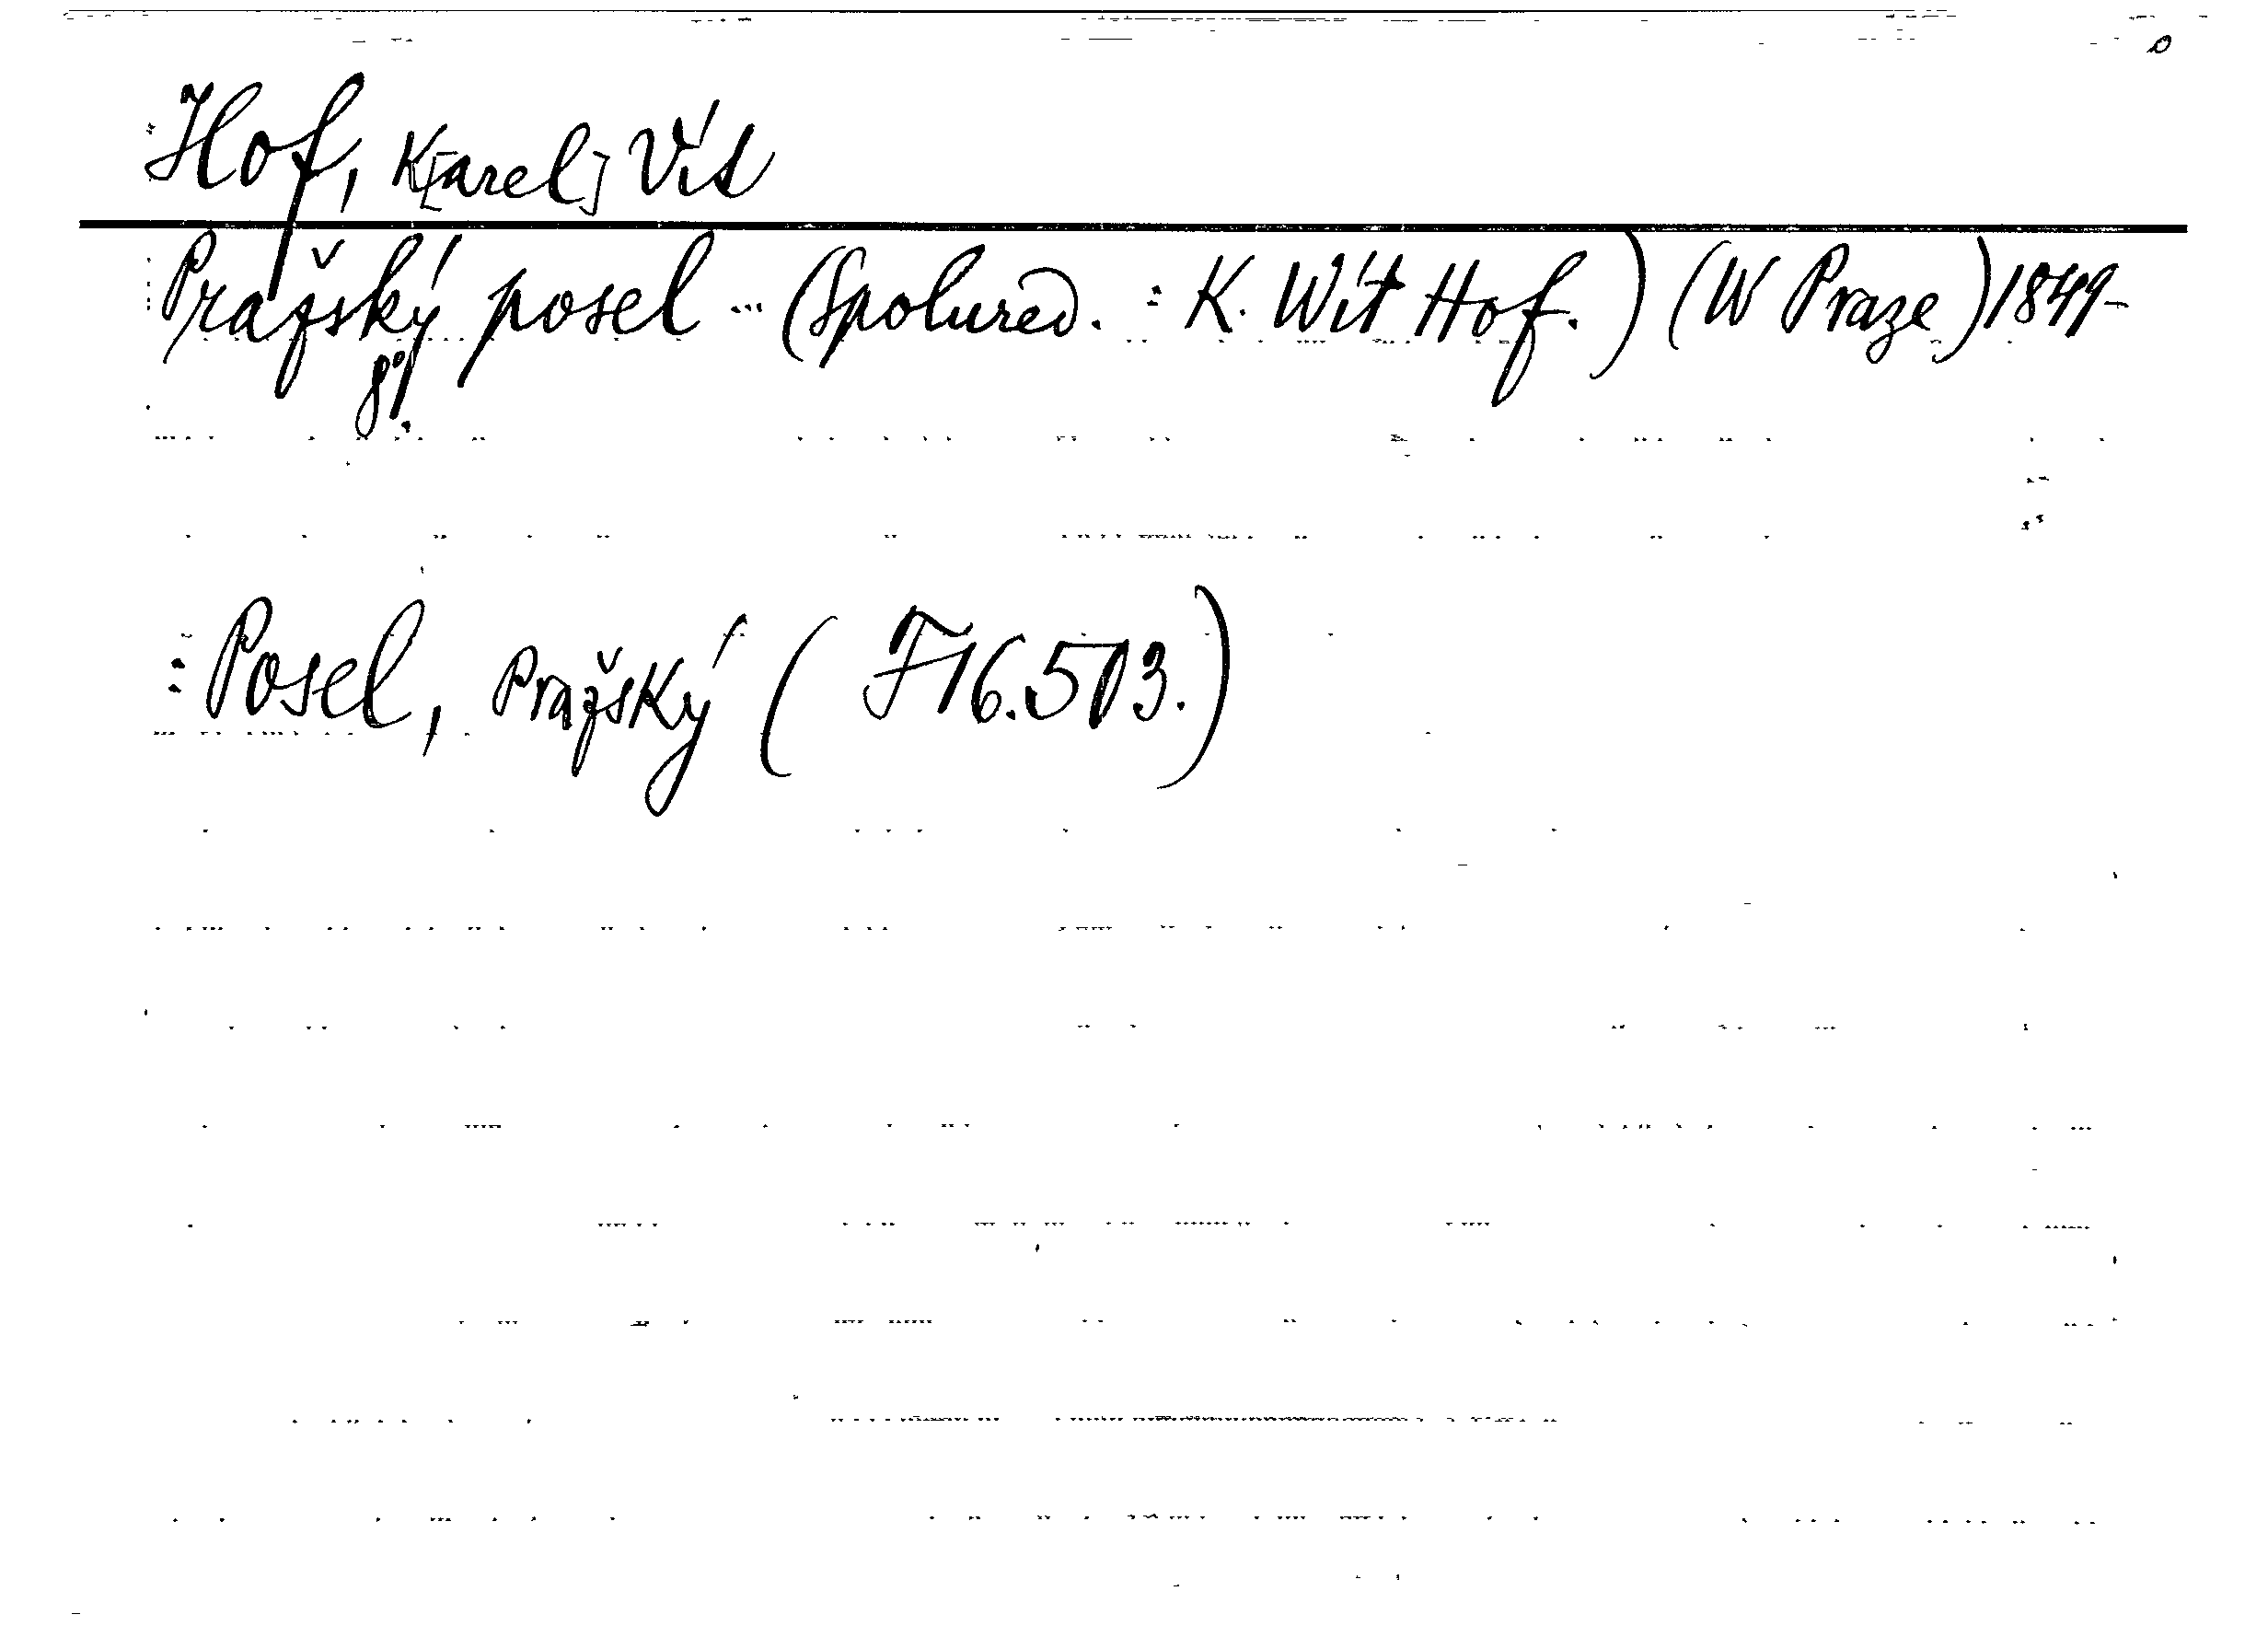 Hof, K[arel] Vít
Pražský posel ... (Spolured. : K. Wít Hof.) (W Praze) 1849-
8°.
: Posel, Pražský (F 16.513.)